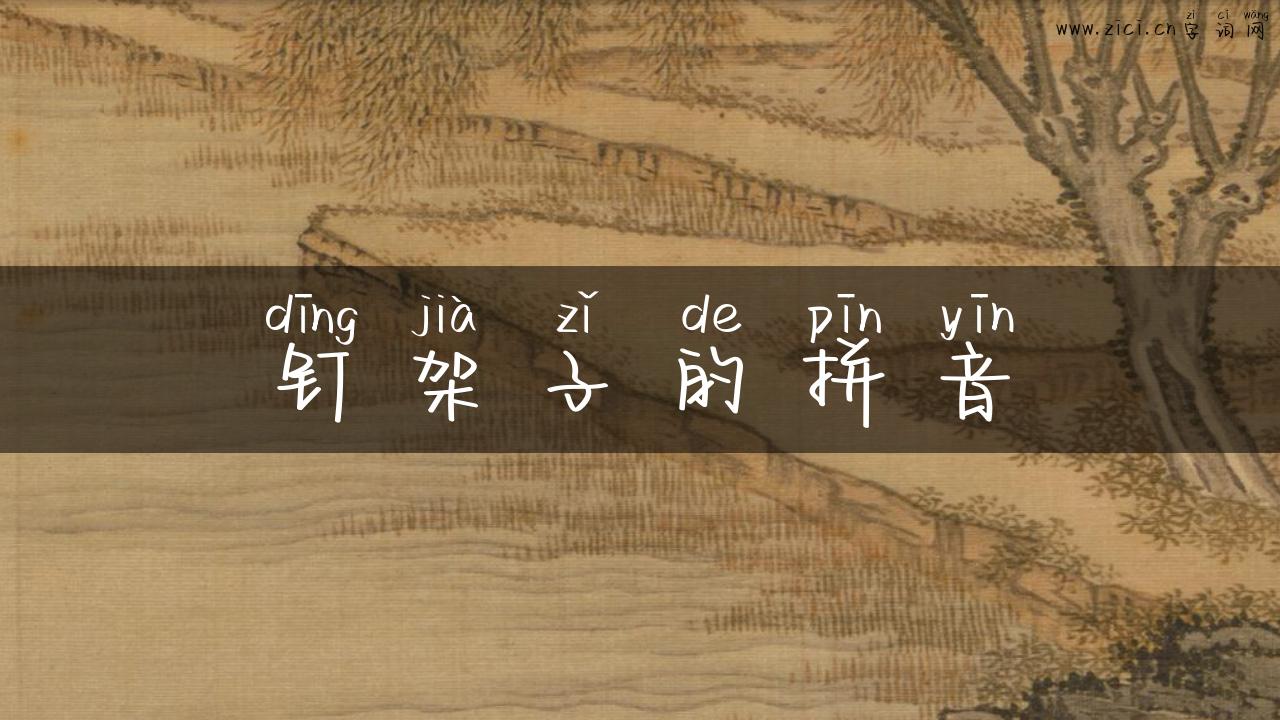 zì cí wǎng
www.zici.cn字词网
dīng jià zǐ de pīn yīn
钉架子的拼音